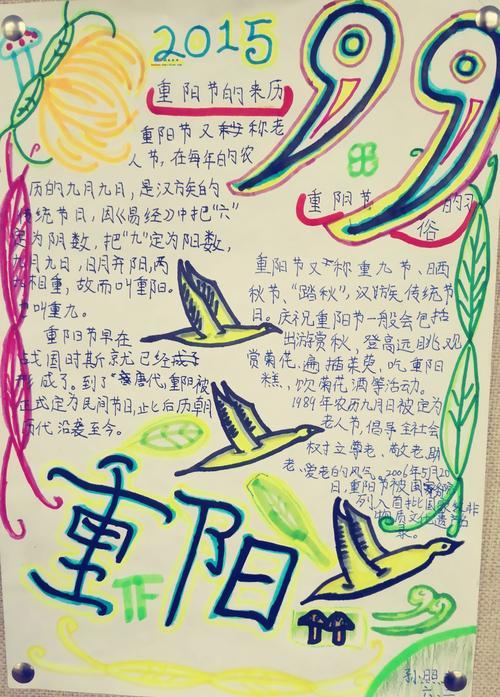 2015
99
重阳节的来历
重阳节又称老
人节,在每年的农
历的九月九日,是汉族的
传统节日,因《易经》中把“六”
定为阴数,把“九”定为阳数,
九月九日,日月并阳,两
九相重,故而叫重阳。
也叫重九。
重阳节早在
战国时期就已经
形成了。到了唐代,重阳被
正式定为民间节日,此后历朝
历代沿袭至今。
重阳节的习
俗
重阳节又称重九节、晒
秋节、“踏秋”,汉族传统节
日。庆祝重阳节一般会包括
出游赏秋,登高远眺,观
赏菊花、遍插茱萸,吃重阳
糕、饮菊花酒等活动。
1989年农历九月九日被定为
老人节,倡导全社会
树立尊老、敬老、助
老、爱老的风气。2006年5月20
日,重阳节被国家
列入首批国家级非
物质文化遗产名
录。
重阳